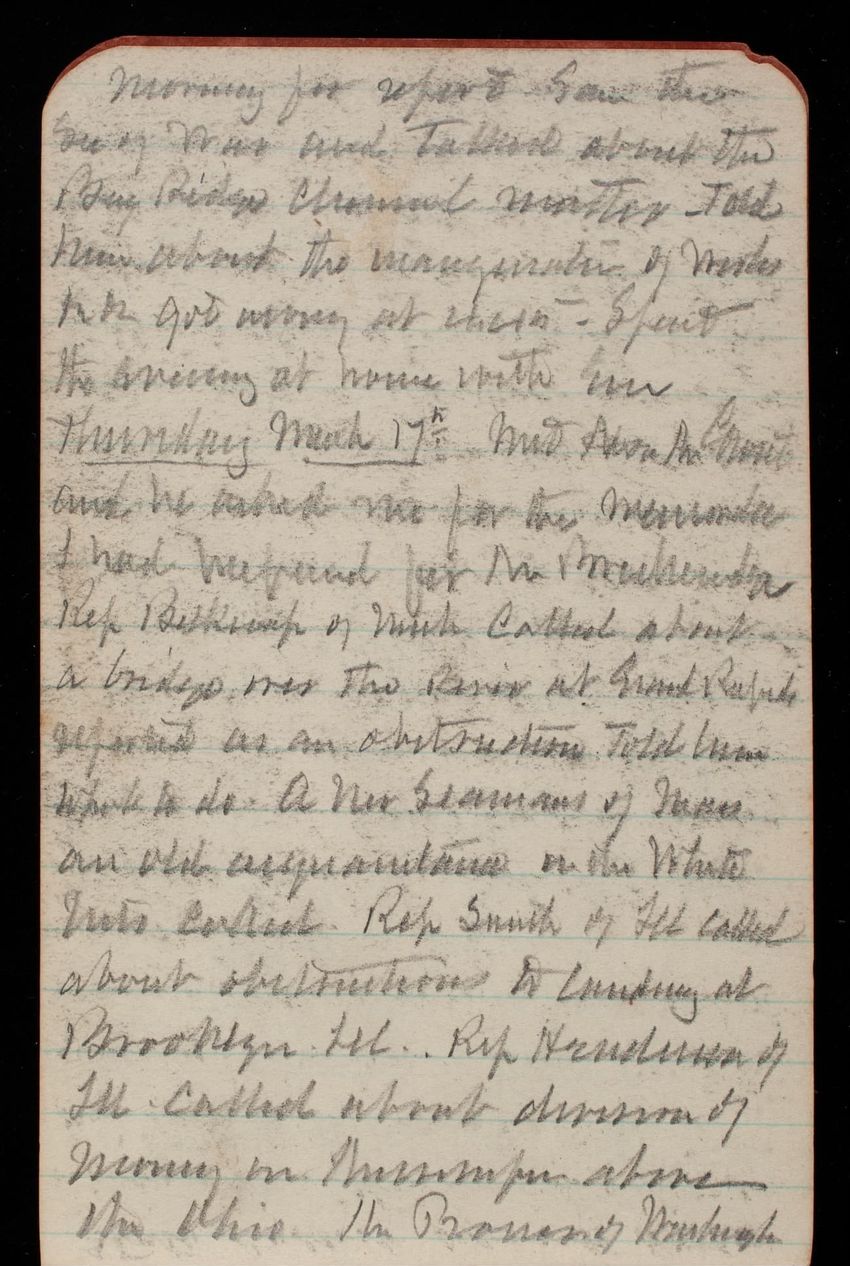 morning for report Saw the
Sec of War and Talked about the
Bay Ridge Channel matter Told
him about the inauguration of works
to get money at once - Spent
the evening at home with Em
Thursday March 17th Met
and he asked me for the memoranda
I had prepared for Mr
Rep Belknap of Mich Called about
a bridge over the River at Grand Rapids
reported as an obstruction Told him
what to do. A Mr Seamans of Mass
an old acquaintance in the White
Mts Called. Rep Smith of Ill called
about obstructions to landing at
Brooklyn Ill. Rep Henderson of
Ill Called about division of
money on Mississippi above
the Ohio. The